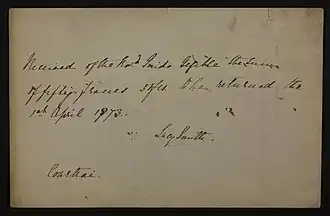 Received of the Revd Guido Gezelle the sum
of fifty francs 50fcs to be returned the
1st April 1873.
Lucy Smith
Courtrai.